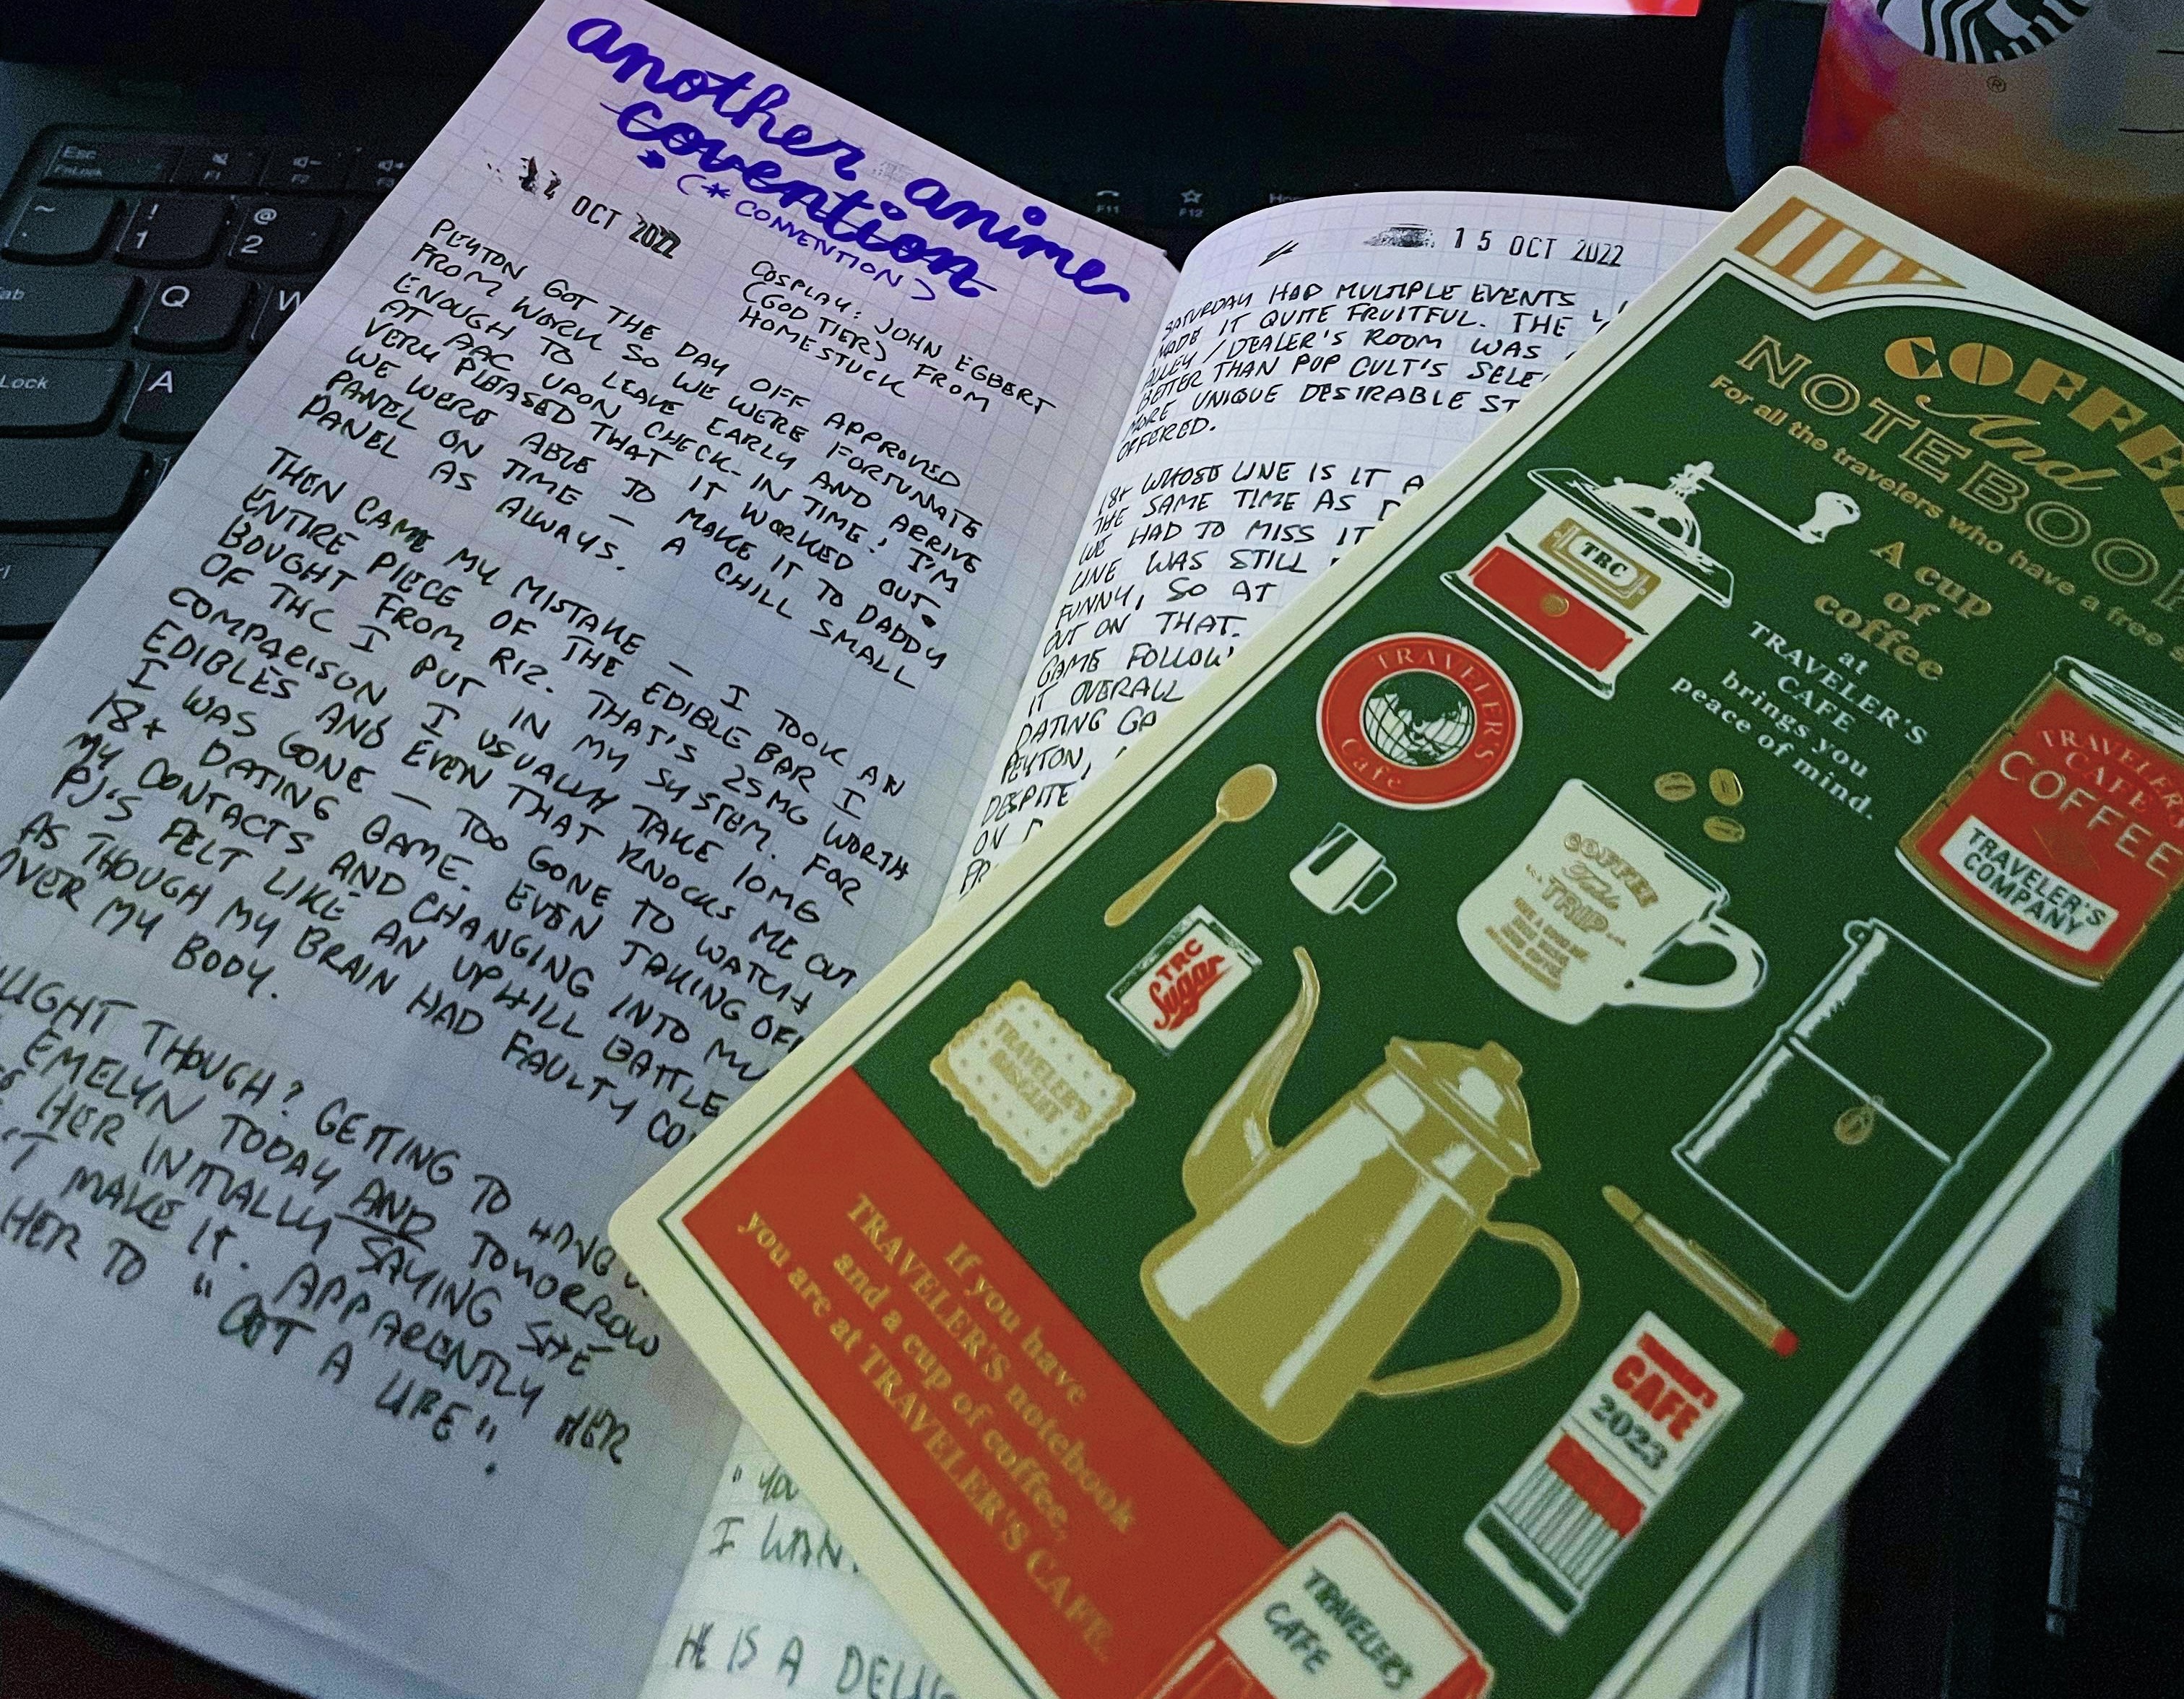 another anime
covention
(* CONVENTION)
OCT 2022
COSPLAY: JOHN EGBERT
(GOD TIER) FROM
HOMESTUCK
PEYTON GOT THE DAY OFF APPROVED
FROM WORK SO WE WERE FORTUNATE
ENOUGH TO LEAVE EARLY AND ARRIVE
AT AAC UPON CHECK-IN TIME! I'M
VERY PLEASED THAT IT WORKED OUT.
WE WERE ABLE TO MAKE IT TO DADDY
PANEL ON TIME — A CHILL SMALL
PANEL AS ALWAYS.
THEN CAME MY MISTAKE — I TOOK AN
ENTIRE PIECE OF THE EDIBLE BAR I
BOUGHT FROM RIZ. THAT'S 25MG WORTH
OF THC I PUT IN MY SYSTEM. FOR
COMPARISON I USUALLY TAKE 10MG
EDIBLES AND EVEN THAT KNOCKS ME OUT
I WAS GONE — TOO GONE TO WATCH
18+ DATING GAME. EVEN TAKING OFF
MY CONTACTS AND CHANGING INTO MY
PJ'S FELT LIKE AN UPHILL BATTLE
AS THOUGH MY BRAIN HAD FAULTY
OVER MY BODY.
THOUGH? GETTING TO HANG
EMELYN TODAY AND TOMORROW
HER INITIALLY SAYING SHE
MAKE IT. APPARENTLY HER
HER TO "GOT A LIFE".
15 OCT 2022
SATURDAY HAD MULTIPLE EVENTS
MADE IT QUITE FRUITFUL. THE
ALLEY / DEALER'S ROOM WAS
BETTER THAN POP CULT'S
MORE UNIQUE DESIRABLE
OFFERED.
18+ WHOSE LINE IS IT
THE SAME TIME AS
WE HAD TO MISS IT
LINE WAS STILL
FUNNY, SO AT
OUT ON THAT.
GAME
IT OVERALL
DATING
PEYTON,
DESPITE
ON
I
HE IS A
COFFEE
And
NOTEBOOK
For all the travelers who have a free
A cup
of
coffee
at
TRAVELER'S
CAFE
brings you
peace of mind.
TRC
TRAVELER'S
Cafe
TRAVELER'S
CAFE
COFFEE
TRAVELER'S
COMPANY
COFFEE
TRIP
TRC
Sugar
TRAVELER'S
BISCUIT
If you have
TRAVELER'S notebook
and a cup of coffee,
you are at TRAVELER'S CAFE.
CAFE
2023
TRAVELER'S
CAFE
Esc
FnLock
F1
F11
F12
~
!
1
@
2
Q
W
A
Lock